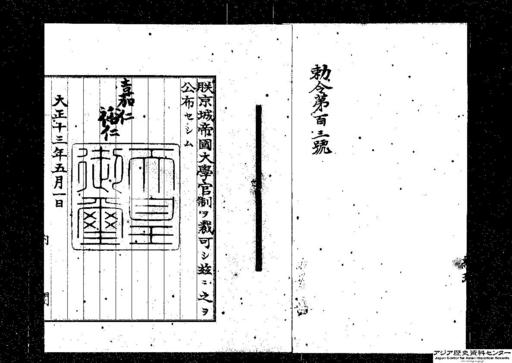 勅令第百三號
朕京城帝國大學官制ヲ裁可シ茲ニ之ヲ
公布セシム
嘉仁
裕仁
天皇御璽
大正十三年五月一日
アジア歴史資料センター
Japan Center for Asian Historical Records